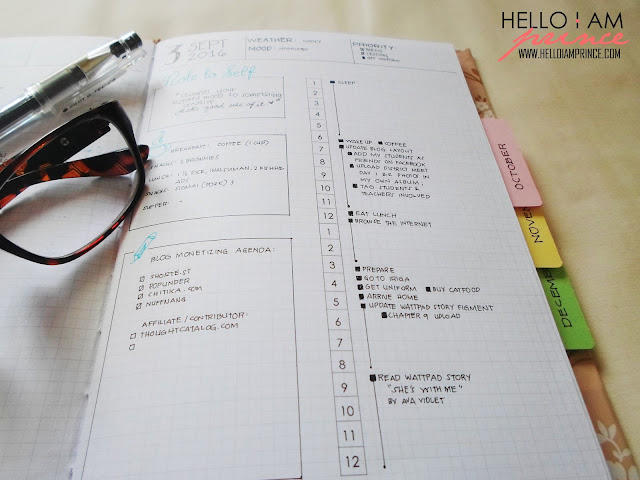 HELLO I AM
prince
WWW.HELLOIAMPRINCE.COM
3 SEPT
2016
WEATHER:
MOOD:
PRIORITY:
Note to Self
YOUR
MOOD TO SOMETHING
good use of it
BREAKFAST: COFFEE (1 CUP)
BROWNIES
LUNCH: 1/2 RICE,
ADS
SUPPER: -
BLOG MONETIZING AGENDA:
SHORTE.ST
POPUNDER
CHITIKA.COM
NUFFNANG
AFFILIATE / CONTRIBUTOR:
THOUGHTCATALOG.COM
1 SLEEP
2
3
4
5
6 WAKE UP COFFEE
7 UPDATE BLOG LAYOUT
8 ADD MY STUDENTS AS
FRIENDS ON FACEBOOK
9 UPLOAD DISTRICT MEET
DAY 1 & 2 PHOTOS IN
10 MY OWN ALBUM;
11 TAG STUDENTS &
TEACHERS INVOLVED
12 EAT LUNCH
BROWSE THE INTERNET
1
2
3 PREPARE
GO TO IRIGA
4 GET UNIFORM BUY CATFOOD
ARRIVE HOME
5 UPDATE WATTPAD STORY FIGMENT
6 CHAPTER 9 UPLOAD
7
8
READ WATTPAD STORY
9 "SHE'S WITH ME"
BY AVA VIOLET
10
11
12
OCTOBER
NOVEM
DECEMBE